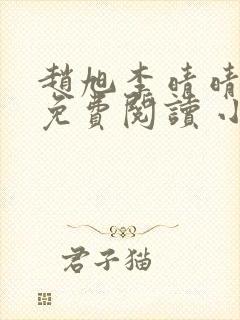 趙旭李晴晴
免費閱讀小
君子猫